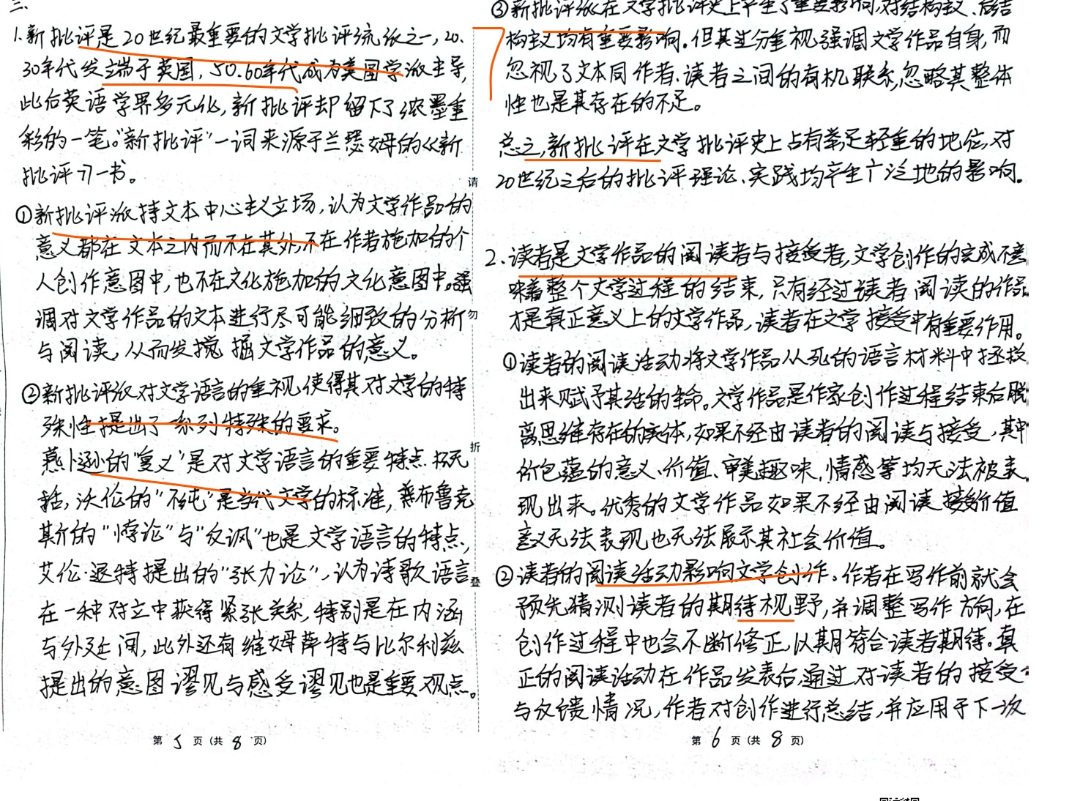 三、
1.新批评是20世纪最重要的文学批评流派之一,20、
30年代发端于英国,50.60年代成为美国学派主导,
此后英语学界多元化,新批评却留下了浓墨重
彩的一笔。"新批评"一词来源于兰瑟姆的《新
批评》一书。
①新批评派持文本中心主义立场,认为文学作品的
意义都在文本之内而不在其外,不在作者施加的个
人创作意图中,也不在文化施加的文化意图中。强
调对文学作品的文本进行尽可能细致的分析
与阅读,从而发掘文学作品的意义。
②新批评派对文学语言的重视,使得其对文学的特
殊性提出了系列特殊的要求。
燕卜逊的"复义"是对文学语言的重要特点
沃伦的"不纯"是当代文学的标准,布鲁克
斯的"悖论"与"反讽"也是文学语言的特点,
艾伦·退特提出的"张力论",认为诗歌语言
在一种对立中获得紧张关系,特别是在内涵
与外延间,此外还有维姆萨特与比尔利兹
提出的意图谬见与感受谬见也是重要观点。
第5页(共8页)
请
勿
折
叠
③新批评派在文学批评史上产生了重要影响,对结构主义、后结
构主义均有重要影响。但其过分重视强调文学作品自身,而
忽视了文本同作者、读者之间的有机联系,忽略其整体
性也是其存在的不足。
总之,新批评在文学批评史上占有举足轻重的地位,对
20世纪之后的批评理论、实践均产生广泛地的影响。
7
2.读者是文学作品的阅读者与接受者,文学创作的完成不意
味着整个文学过程的结束,只有经过读者阅读的作品
才是真正意义上的文学作品,读者在文学接受中有重要作用。
①读者的阅读活动将文学作品从死的语言材料中拯救
出来赋予其活的生命。文学作品是作家创作过程结束后脱
离思维存在的实体,如果不经由读者的阅读与接受,其中
所包蕴的意义、价值、审美趣味,情感等均无法被表
现出来。优秀的文学作品如果不经由阅读接价值
意义无法表现也无法展示其社会价值。
②读者的阅读活动影响文学创作。作者在写作前就会
预先猜测读者的期待视野,并调整写作方向,在
创作过程中也会不断修正,以期符合读者期待。真
正的阅读活动在作品发表后,通过对读者的接受
与反馈情况,作者对创作进行总结,并应用于下一次
第6页(共8页)